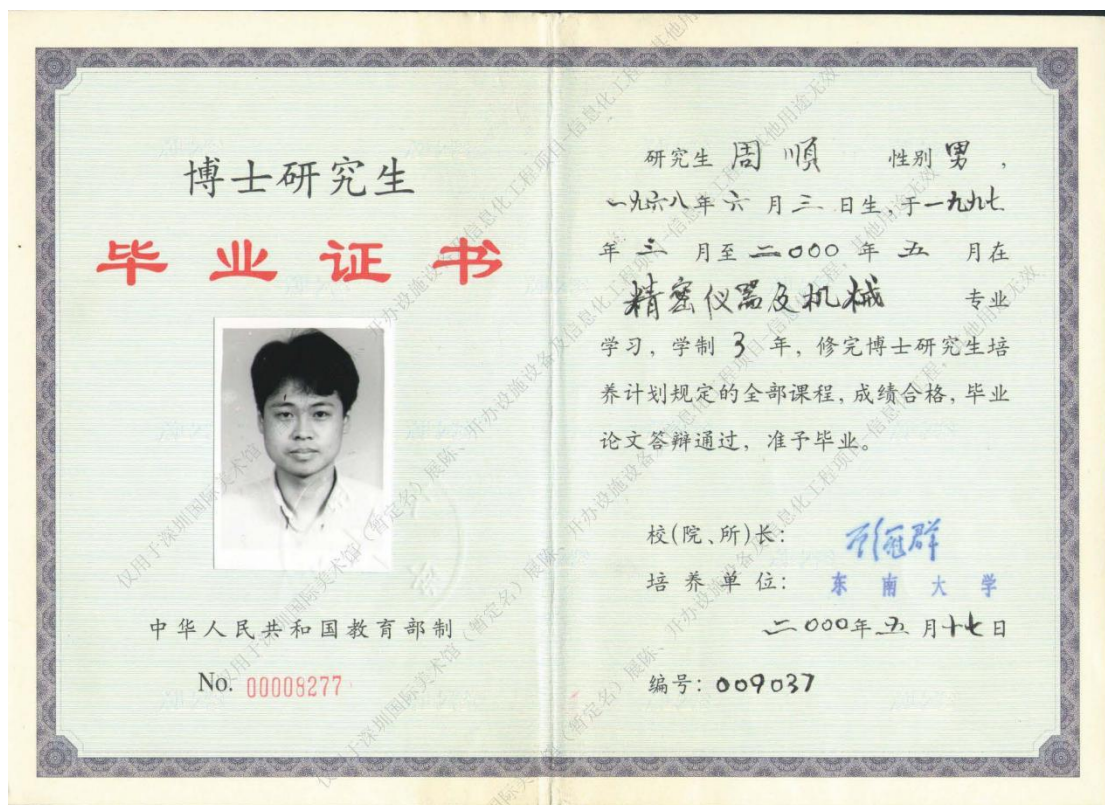 博士研究生
毕业证书
中华人民共和国教育部制
No. 00008277
研究生 周顺 性别 男,
一九六八年六月三日生,于一九九七
年三月至二000年五月在
精密仪器及机械 专业
学习,学制3年,修完博士研究生培
养计划规定的全部课程,成绩合格,毕业
论文答辩通过,准予毕业。
校(院、所)长:
培养单位: 东南大学
二000年五月十七日
编号:009037
仅用于深圳国际美术馆(暂定名)展陈、开办设施设备及信息化工程项目-信息化工程,其他用途无效